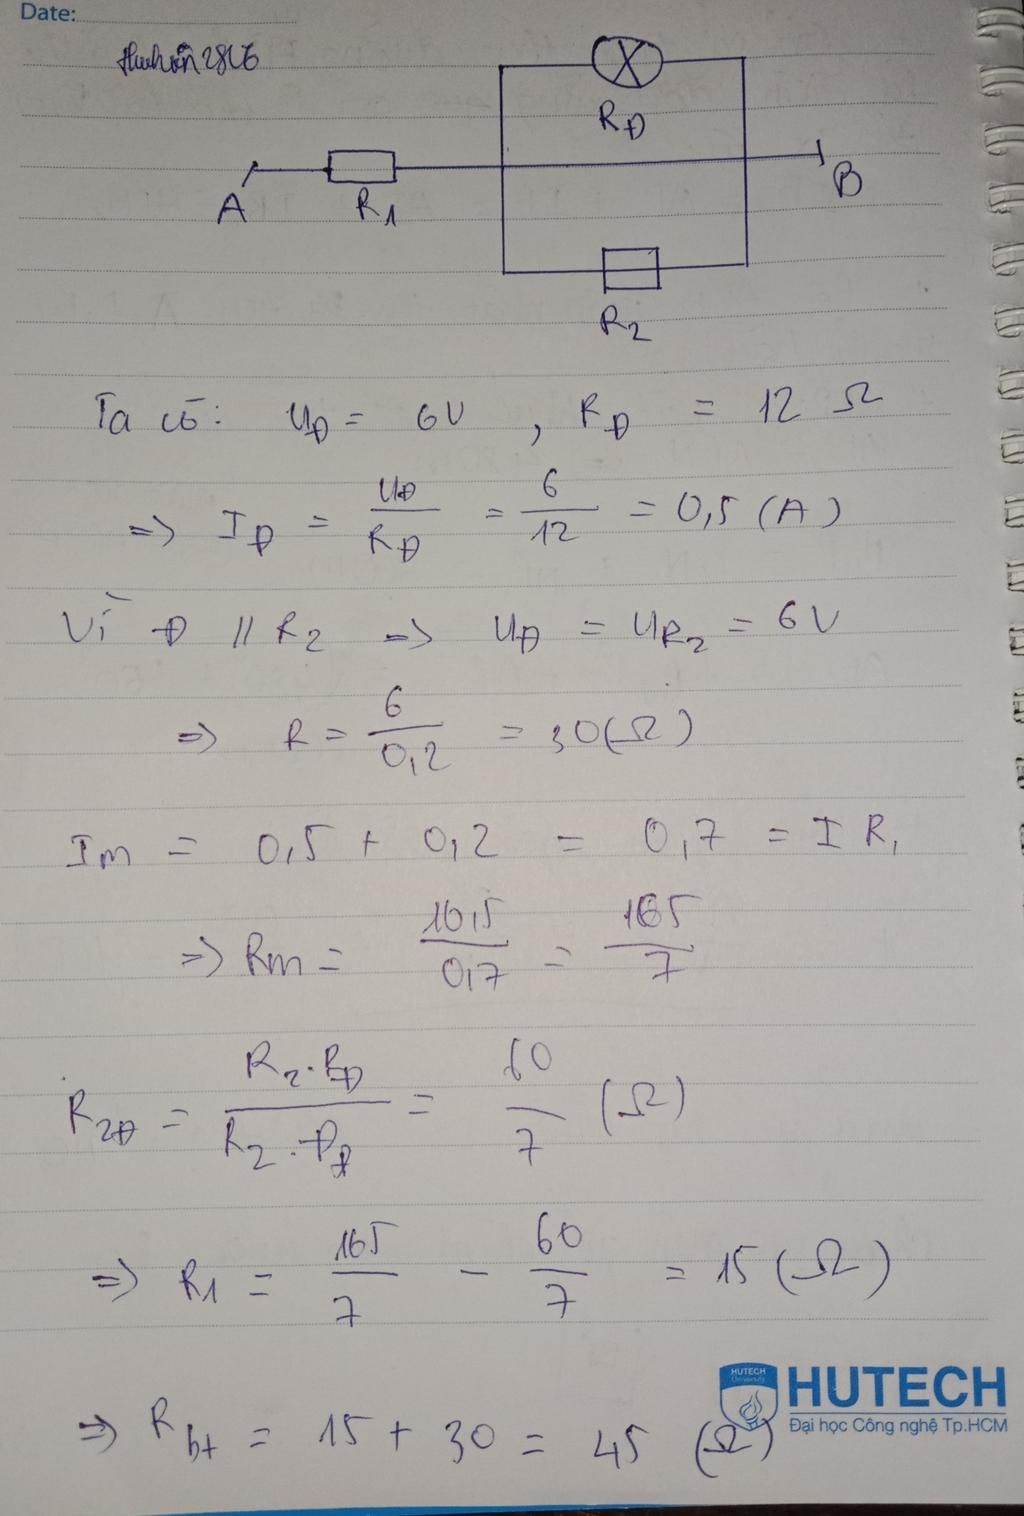 Date:
R_Đ
A
R1
B
R2
Ta có: U_Đ = 6V , R_Đ = 12 Ω
=> I_Đ = U_Đ/R_Đ = 6/12 = 0,5 (A)
Vì Đ // R2 => U_Đ = U_R2 = 6V
=> R = 6/0,2 = 30(Ω)
Im = 0,5 + 0,2 = 0,7 = I R1
=> Rm = 16,5/0,7 = 165/7
R_2Đ = R2.R_Đ/R2.R_Đ = 60/7 (Ω)
=> R1 = 165/7 - 60/7 = 15 (Ω)
=> R_bt = 15 + 30 = 45 (Ω)
HUTECH
University
HUTECH
Đại học Công nghệ Tp.HCM